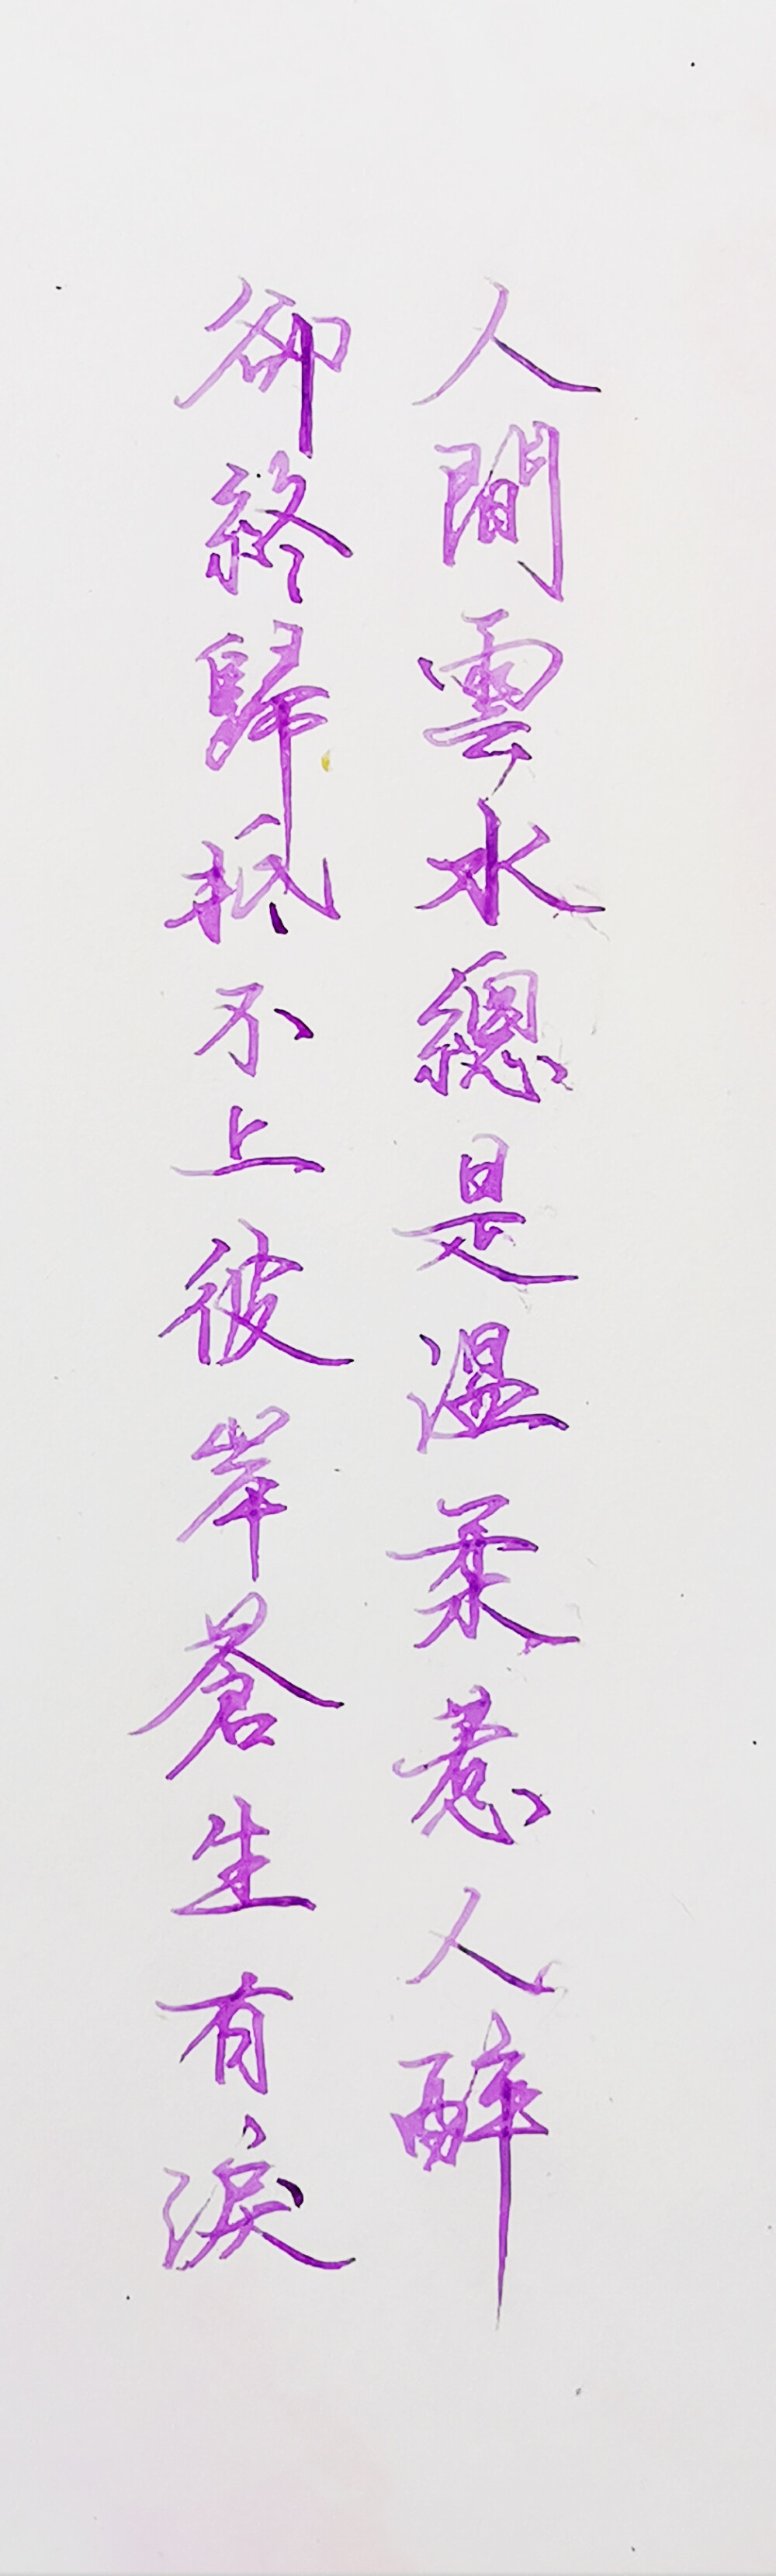 人間雲水總是溫柔惹人醉
卻終歸抵不上彼岸蒼生有淚